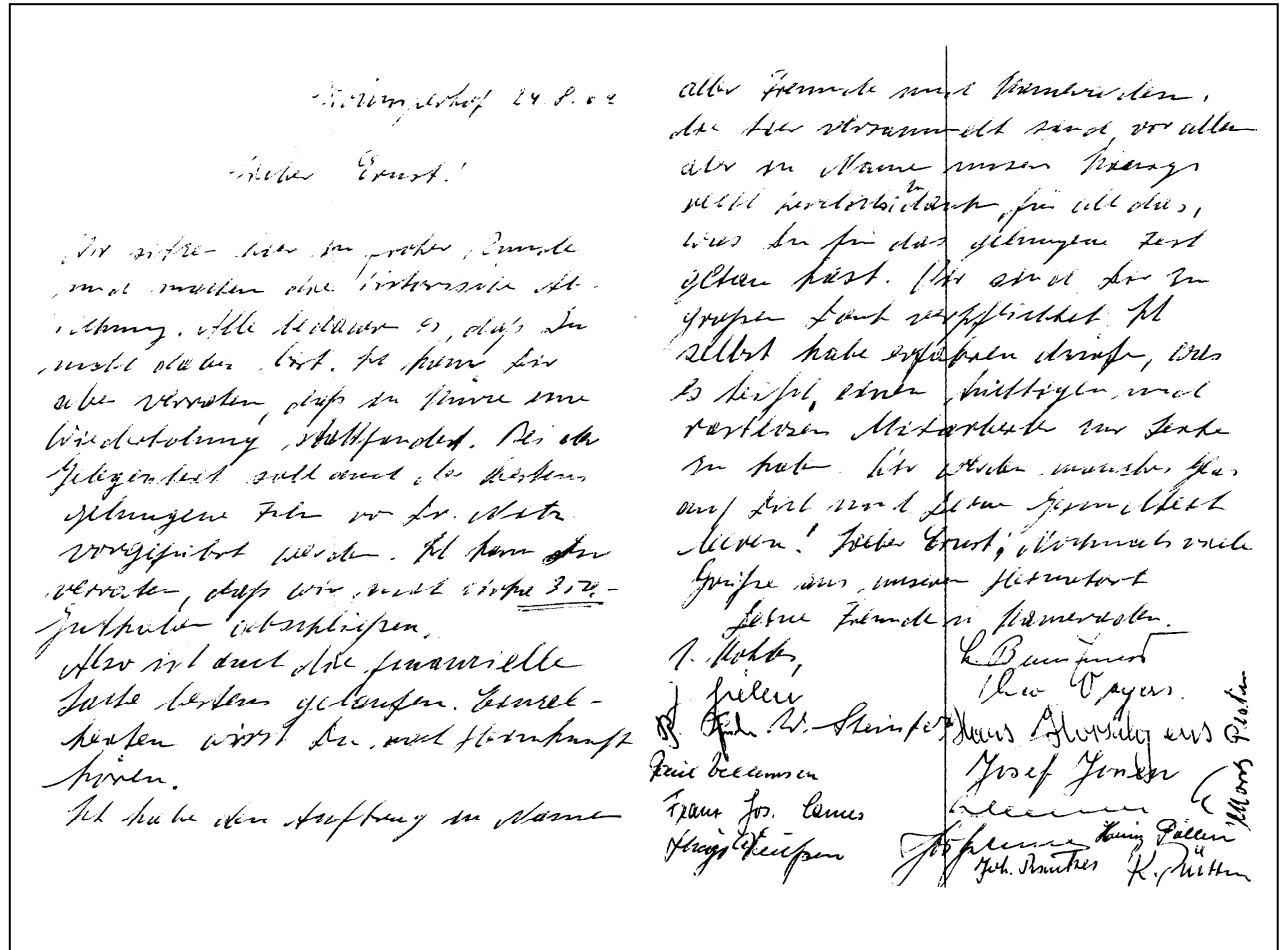 24.8.
Lieber Ernst!
Wir sitzen hier in froher Runde
und machen die historische Ab-
rechnung. Alle bedauern es, daß Du
nicht dabei bist. Ich kann Dir
aber verraten, daß in Kürze eine
Wiederholung stattfindet. Bei der
Gelegenheit soll auch der bestens
gelungene Film von Dr.
vorgeführt werden. Ich kann Dir
verraten, daß wir mit
Guthaben abschließen.
Also ist auch die finanzielle
Seite bestens gelaufen. Einzel-
heiten wirst Du nach Heimkunft
hören.
Ich habe den Auftrag im Name
aller Freunde und Kameraden,
die hier versammelt sind, vor allem
aber im Name unseres Königs
recht herzlich zu danken, für all das,
was Du für das gelungene Fest
getan hast. Wir sind Dir zu
großem Dank verpflichtet. Ich
selbst habe erfahren dürfen, was
es heißt, einen tüchtigen und
rastlosen Mitarbeiter zur Seite
zu haben. Wir werden manches Glas
auf Dich und Deine Gesundheit
leeren! Lieber Ernst, nochmals viele
Grüße aus unserem Heimatort
Deine Freunde u Kameraden.
Theo
W. Hans
Josef Jansen
Franz Jos.
Heinz
Joh. K.